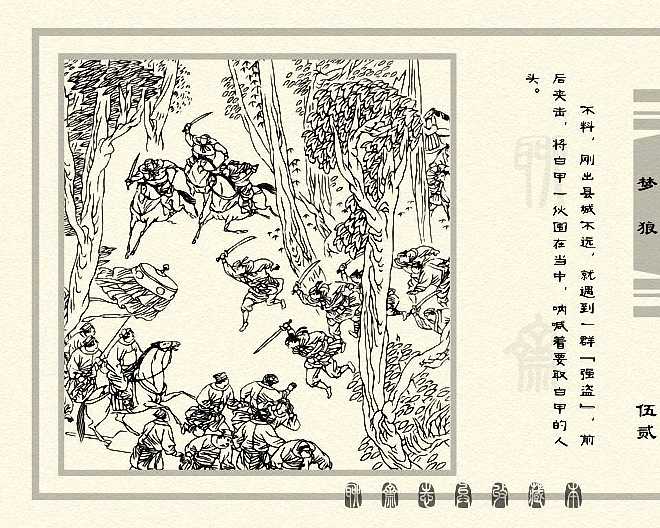 不料，刚出县城不远，就遇到一群「强盗」，前
后夹击，将白甲一伙围在当中，呐喊着要取白甲的人
头。
梦狼
伍贰
聊斋志异收藏本